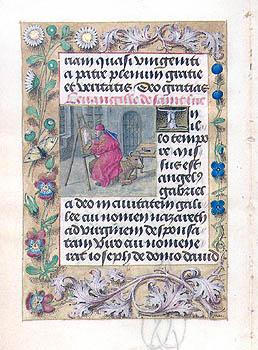 riam quasi vnigeniti
a patre plenum gratie
et veritatis. Deo gratias
Leuangille de saint luc
In il
lo tempo
re mis
sus est
angelus
gabriel
a deo in ciuitatem gali
lee cui nomen nazareth
ad virginem desponsa
tam viro cui nomen e
rat ioseph de domo dauid